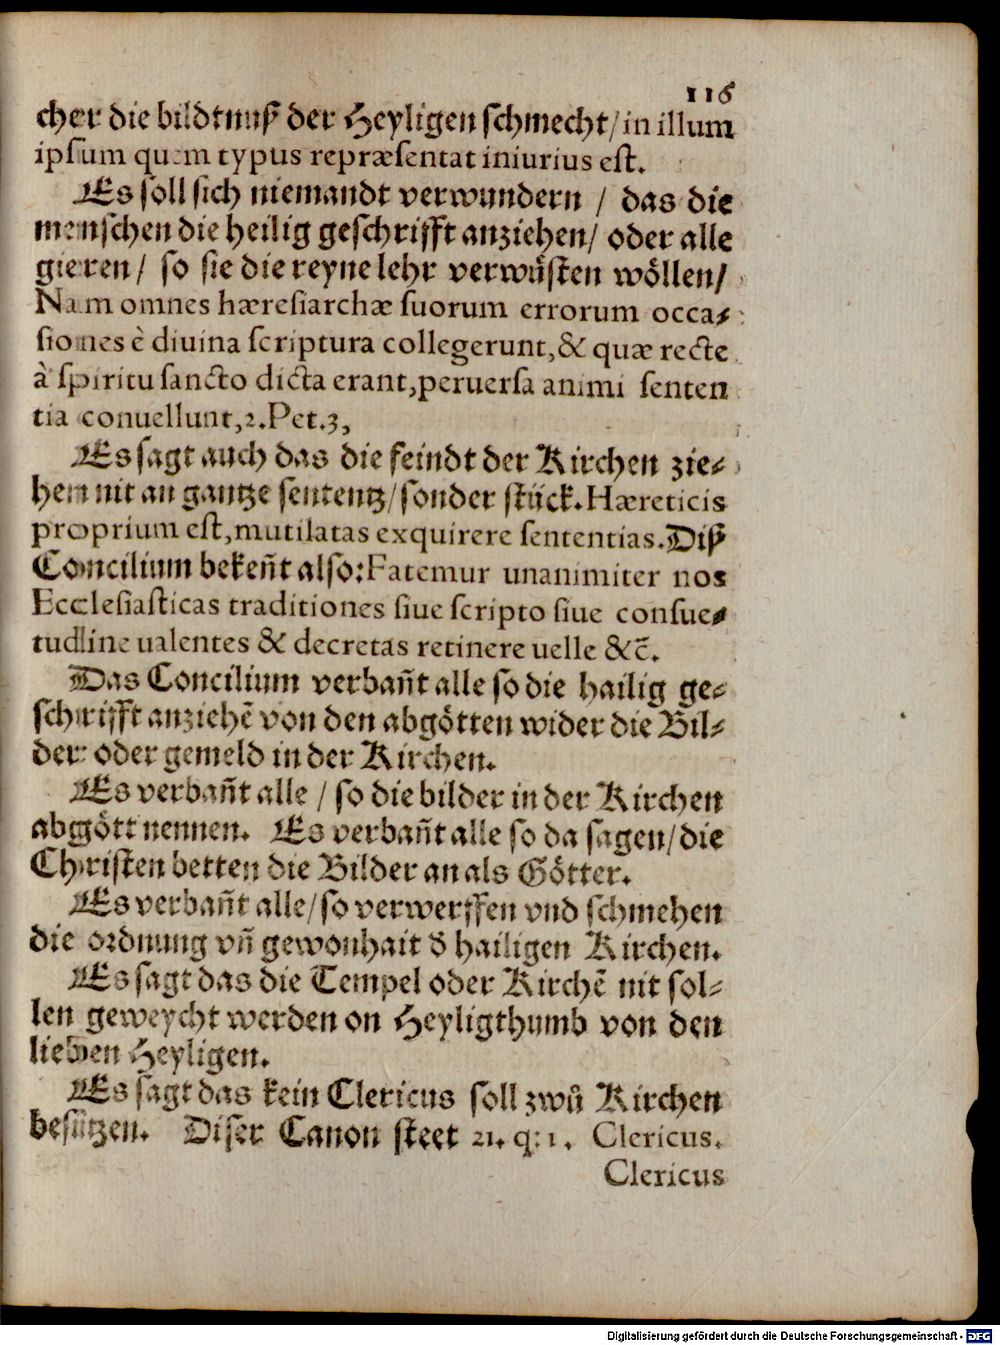 116
cher die bildtnuß der Heyligen schmecht/in illum
ipsum quem typus repræsentat iniurius est.
Es soll sich niemandt verwundern / das die
menschen die heilig geschrifft anziehen/ oder alle
gieren/ so sie die reyne lehr verwůsten wöllen/
Nam omnes hæresiarchæ suorum errorum occa⸗
siones è divina scriptura collegerunt,& quæ recte
à spiritu sancto dicta erant,peruersa animi senten
tia conuellunt,2.Pet.3,
Es sagt auch das die feindt der Kirchen zie⸗
hen nit an gantze sententz/sonder stück.Hæreticis
proprium est,mutilatas exquirere sententias.Diß
Concilium bekeñt also:Fatemur unanimiter nos
Ecclesiasticas traditiones siue scripto siue consue⸗
tudine ualentes & decretas retinere uelle &c̃.
Das Concilium verbañt alle so die hailig ge⸗
schrifft anziehẽ von den abgötten wider die Bil⸗
der oder gemeld in der Kirchen.
Es verbañt alle / so die bilder in der Kirchen
abgött nennen. Es verbañt alle so da sagen/die
Christen betten die Bilder an als Götter.
Es verbañt alle/so verwerffen vnd schmehen
die ordnung vñ gewonhait d̃ hailigen Kirchen.
Es sagt das die Tempel oder Kirchẽ nit sol⸗
len geweycht werden on Heyligthumb von den
lieben Heyligen.
Es sagt das kein Clericus soll zwů Kirchen
besitzen. Diser Canon steet 21. q: 1. Clericus.
Clericus
Digitalisierung gefördert durch die Deutsche Forschungsgemeinschaft - DFG